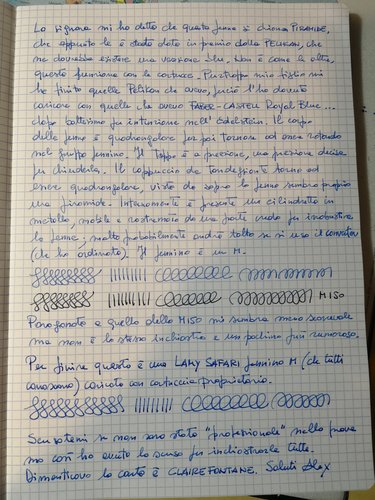 La signora mi ha detto che questa penna si chiama PIRAMIDE,
che appunto le è stata data in premio dalla PELIKAN, che
ne dovrebbe esistere una versione blu. Non è come le altre,
questa funziona con le cartucce. Purtroppo mia figlia mi
ha finito quelle Pelikan che avevo, perciò l'ho dovuta
caricare con quelle che avevo FABER-CASTELL Royal Blue...
dopo battesimo per intenzione nell'Edelstein. Il corpo
della penna è quadrangolare per poi tornare ad essere rotondo
nel gruppo pennino. Il tappo è a pressione, una pressione decisa
per chiuderla. Il cappuccio da tondeggiante torna ad
essere quadrangolare, vista da sopra la penna sembra proprio
una piramide. Internamente è presente un cilindretto in
metallo, mobile e rastremato da una parte credo per
la penna, molto probabilmente andrà tolto se si usa il converter
(che ho ordinato). Il pennino è un M.
MISO
Paragonato a quello della MISO mi sembra meno scorrevole
ma non è lo stesso inchiostro e un pochino più rumoroso.
Per finire questa è una LAMY SAFARI pennino M (che tutti
conoscono) caricata con cartuccia proprietaria.
Scusatemi se non sono stato "professionale" nella prova
ma così ho avuto la scusa per inchiostrarle tutte.
Dimenticavo la carta è CLAIREFONTANE. Saluti Alex